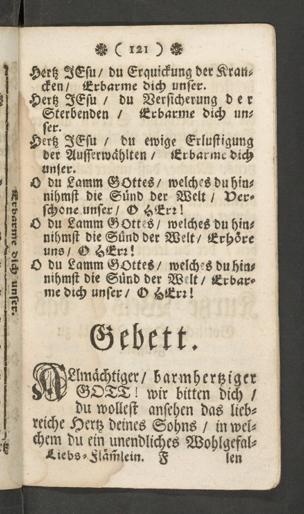 ( 121 )
Hertz JEsu / du Erquickung der Kran-
cken / Erbarme dich unser.
Hertz JEsu / du Versicherung der
Sterbenden / Erbarme dich un-
ser.
Hertz JEsu / du ewige Erlustigung
der Ausserwählten / Erbarme dich
unser.
O du Lamm GOttes / welches du hin-
nihmst die Sünd der Welt / Ver-
schone unser / O HErr!
O du Lamm GOttes / welches du hin-
nihmst die Sünd der Welt / Erhöre
uns / O HErr!
O du Lamm GOttes / welches du hin-
nihmst die Sünd der Welt / Erbar-
me dich unser / O HErr!
Gebett.
ALlmächtiger / barmhertziger
GOTT! wir bitten dich /
du wollest ansehen das lieb-
reiche Hertz deines Sohns / in wel-
chem du ein unendliches Wohlgefal-
Liebs-Flämlein. F len
Erbarme dich unser.